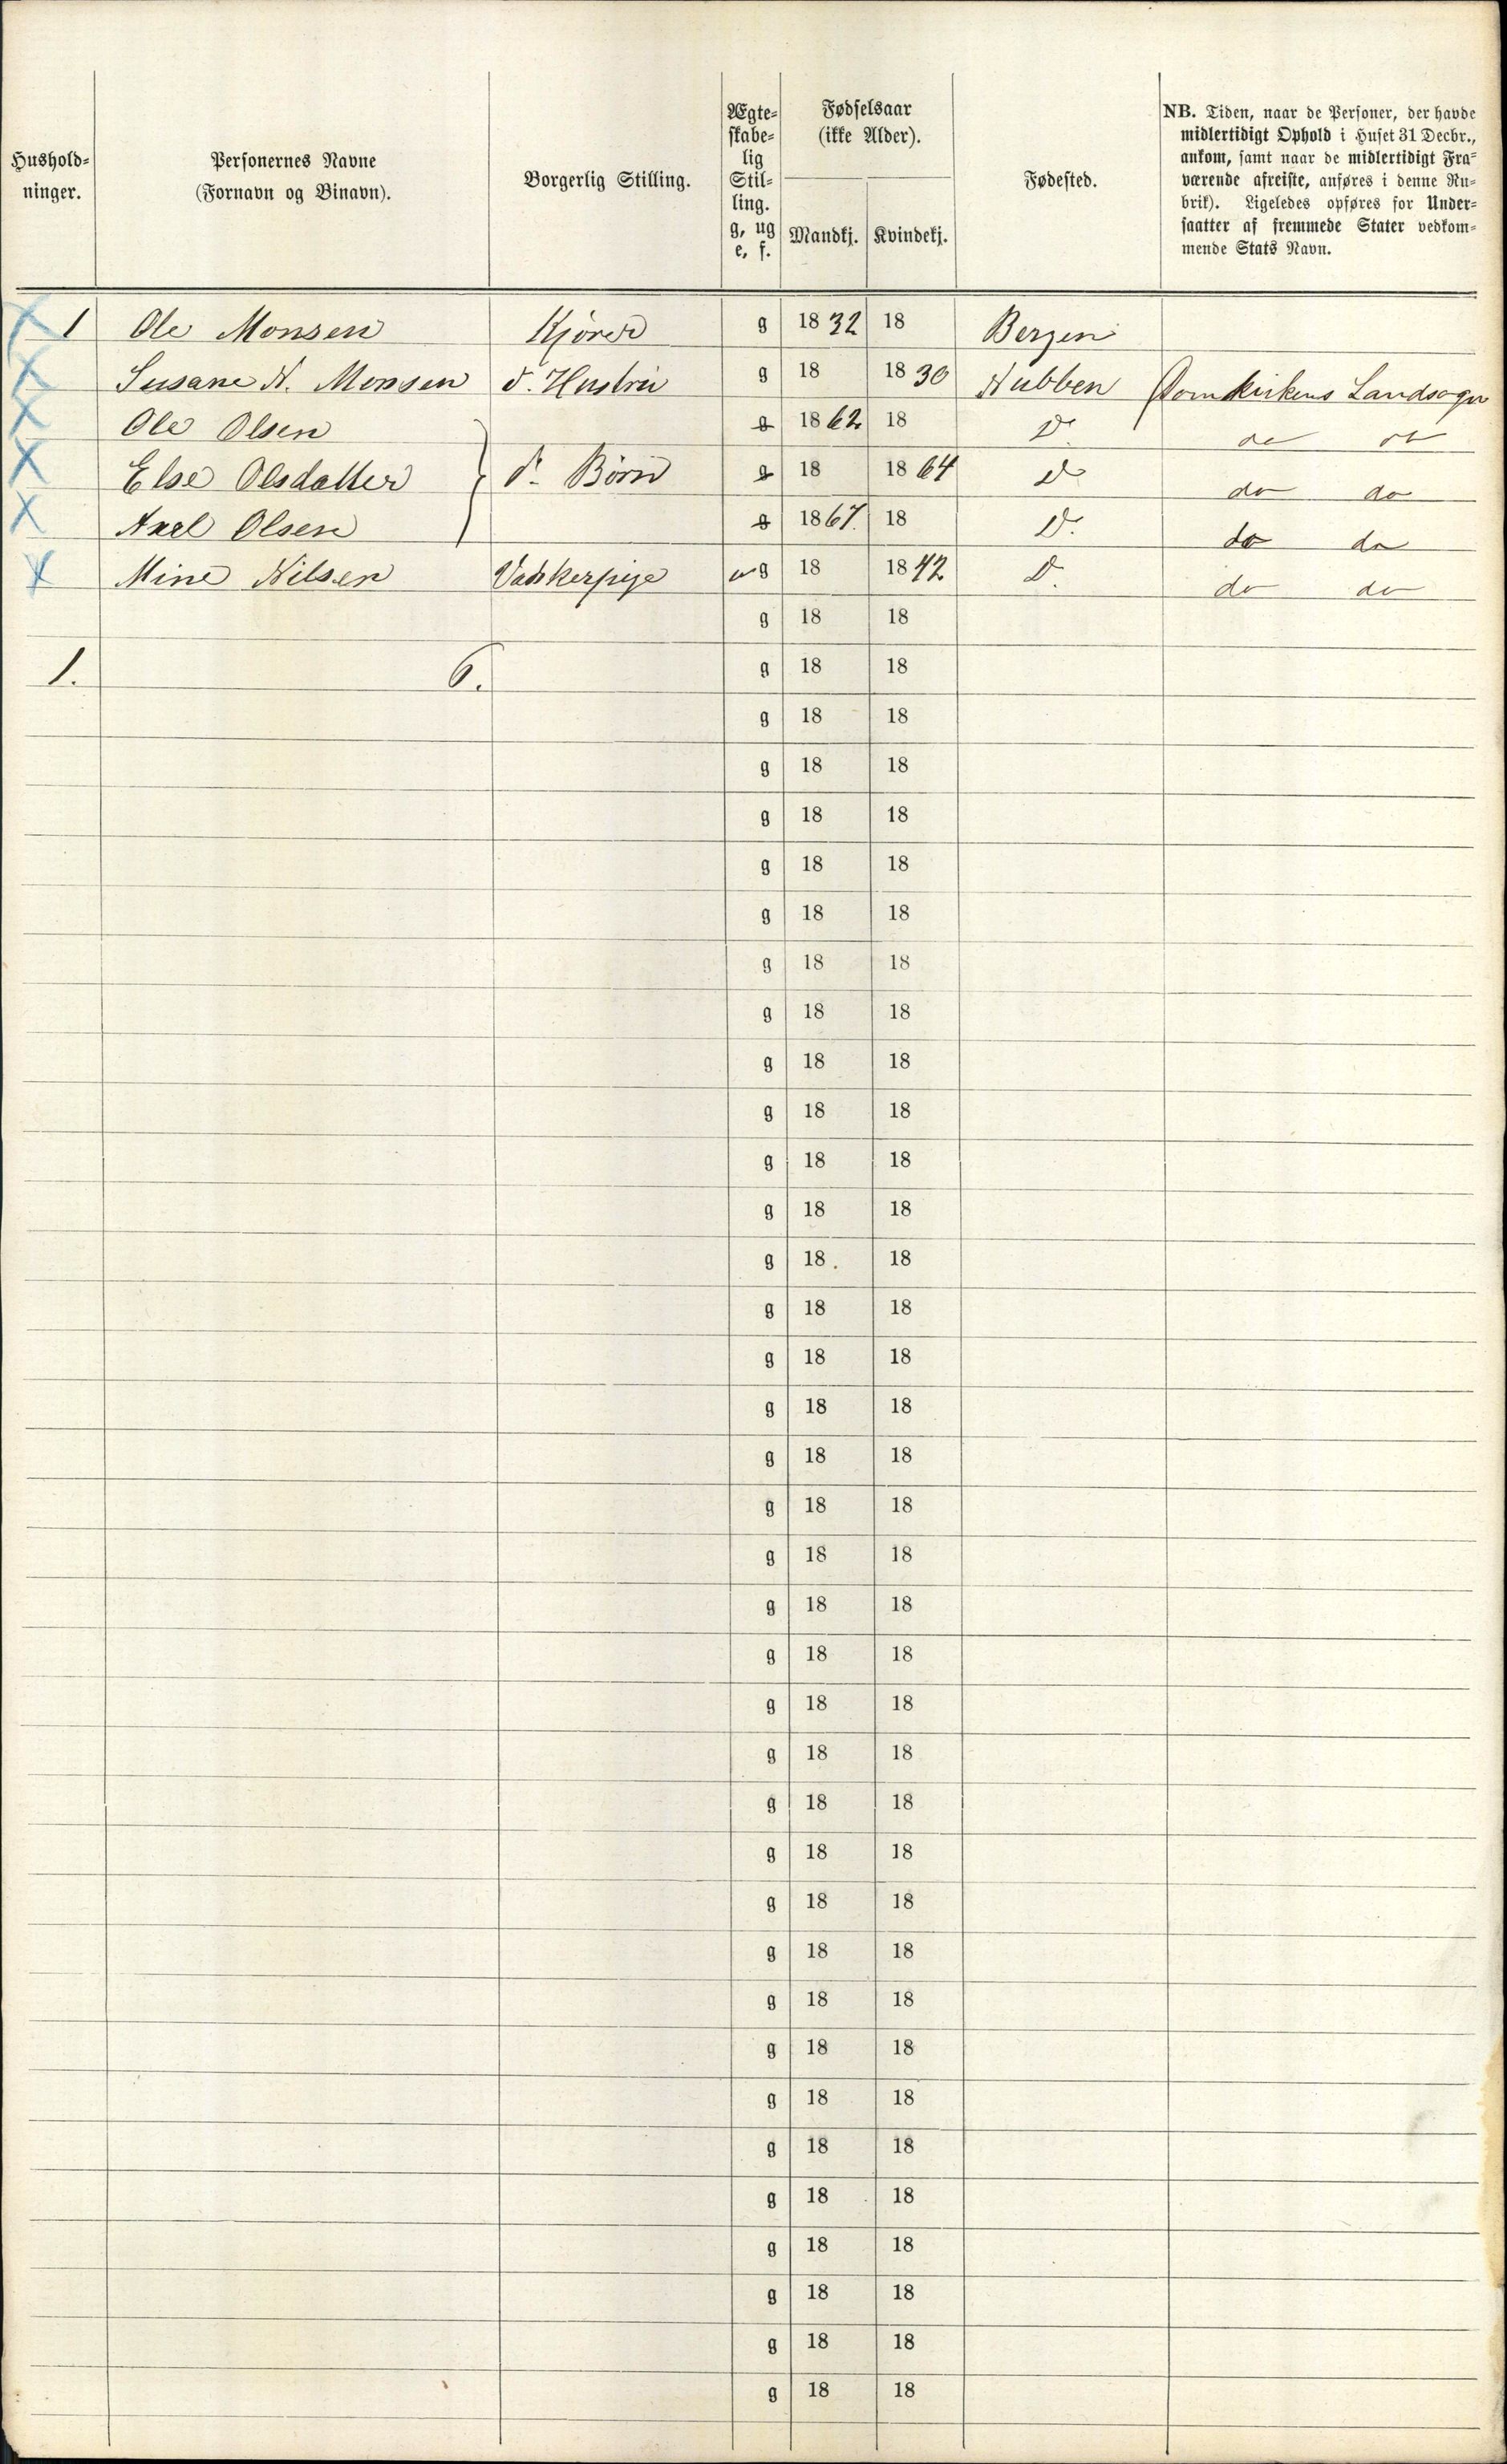 Hushold-
ninger.
Personernes Navne
(Fornavn og Binavn).
Borgerlig Stilling.
Ægte-
skabe-
lig
Stil-
ling.
g, ug
e, f.
Fødselsaar
(ikke Alder).
Mandkj.
Kvindekj.
Fødested.
NB. Tiden, naar de Personer, der havde
midlertidigt Ophold i Huset 31 Decbr.,
ankom, samt naar de midlertidigt Fra-
værende afreiste, anføres i denne Ru-
brik). Ligeledes opføres for Under-
saatter af fremmede Stater vedkom-
mende Stats Navn.
X 1 Ole Monsen Kjører g 1832 18 Bergen
X Susane N. Monsen d. Hustru g 18 1830 Nubben Domkirkens Landsogn
X Ole Olsen g 1862 18 D. do do
X Else Olsdatter } d. Børn g 18 1864 D do do
X Axel Olsen g 1867. 18 D. do do
X Mine Nilsen Vaskerpige ug 18 1842. D. do do
g 18 18
1. 6. g 18 18
g 18 18
g 18 18
g 18 18
g 18 18
g 18 18
g 18 18
g 18 18
g 18 18
g 18 18
g 18 18
g 18 18
g 18. 18
g 18 18
g 18 18
g 18 18
g 18 18
g 18 18
g 18 18
g 18 18
g 18 18
g 18 18
g 18 18
g 18 18
g 18 18
g 18 18
g 18 18
g 18 18
g 18 18
g 18 18
g 18 18
g 18 18
g 18 18
g 18 18
g 18 18
g 18 18